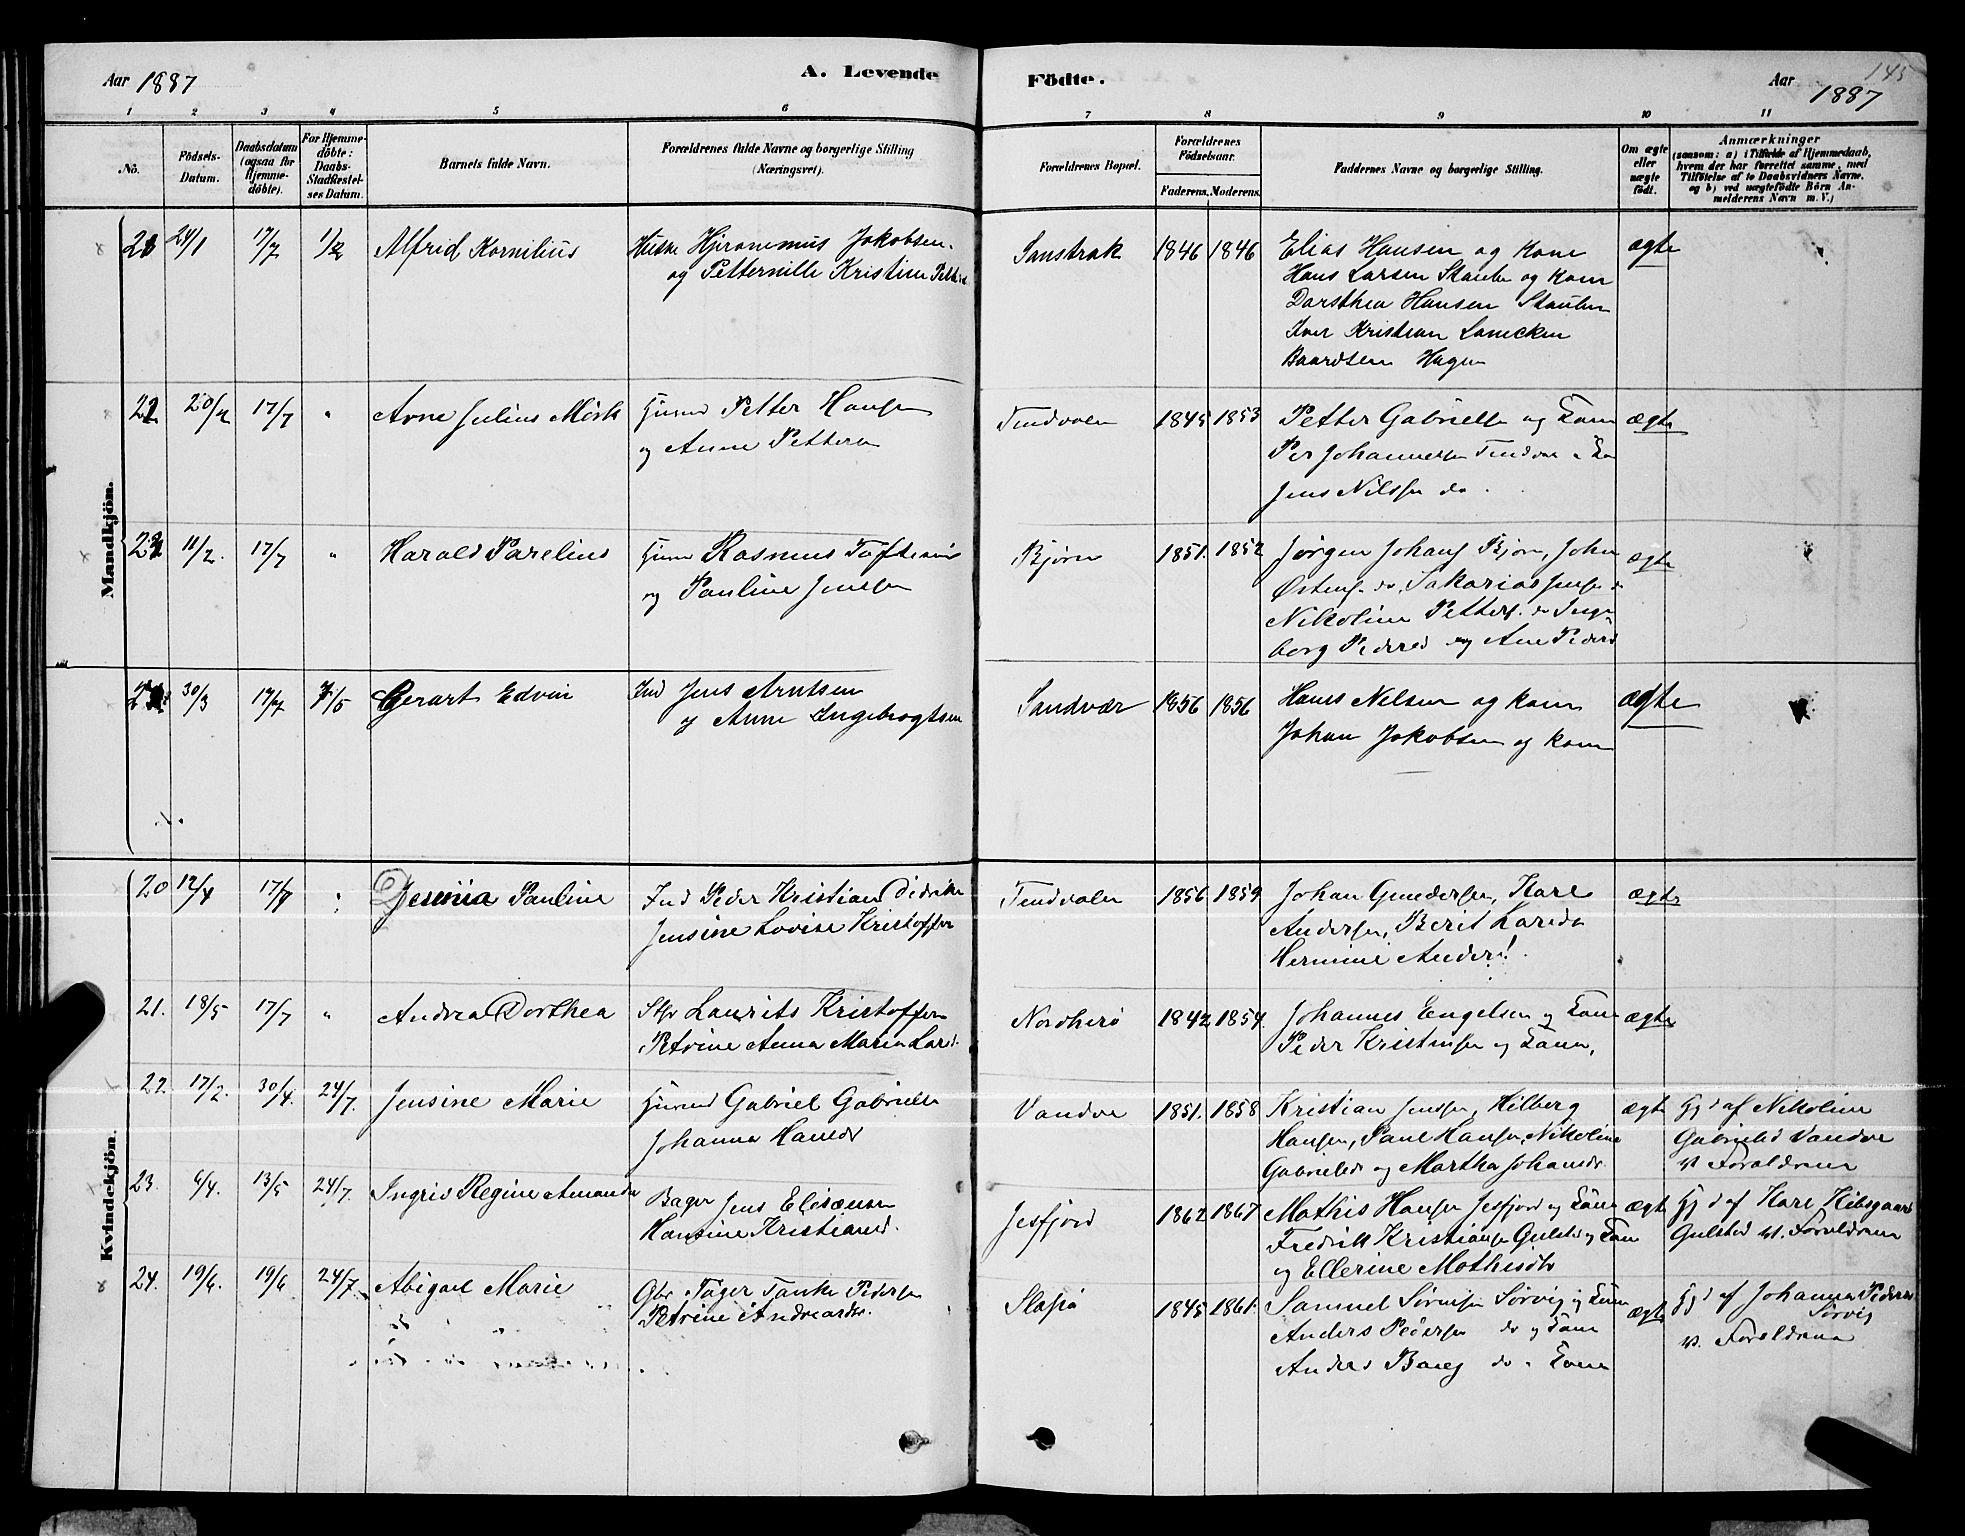 Aar 1887
A. Levende
Födte.
Aar 1887
145
1 2 3 4 5 6 7 8 9 10 11
No.
Födsels-Datum.
Daabsdatum (ogsaa for Hjemme-döbte).
For Hjemme-döbte: Daabs-Stadfæstel-ses Datum.
Barnets fulde Navn.
Forældrenes fulde Navne og borgerlige Stilling (Næringsvei).
Forældrenes Bopæl.
Forældrenes Födselsaar.
Faderens. Moderens.
Faddernes Navne og borgerlige Stilling.
Om ægte eller uægte födt.
Anmærkninger
(saasom: a) i Tilfælde af Hjemmedaab, hvem der har forrettet samme, med Tilföielse af to Daabsvidners Navne, og b) ved uægtefödte Börn An-melderens Navn m. V.)
Mandkjön.
21 24/1 17/7 1/2 Alfrid Kornilius
Hjeronimus Jakobsen
og Petternille Kristine
1846 1846
Elias Hansen og Kone
Hans Larsen Staulen og Kone
Dorsthea Hansen Staulen
Iver Kristian
Baardsen Hagen
ægte
22 17/7 " Arne Julius Mörk
Petter Hansen
og Anne Pettera
Tindvalen 1845 1853
Petter Gabrielsen og Kone
Per Johannessen
Jens Nilsen do.
ægte
11/2. 17/7 " Harald Parelius
Rasmus
og Pauline Jensen
Bjørn 1851. 1852
Jørgen Johans Bjørn, John
Sakarias
Nikoline Petters. do Inge
borg Pedersd og Ane Pedersd
ægte
30/3 17/7 7/5 Gerart Edvin
Ind Jens Arntsen
og Anne Ingebrogtsen
Sandvær 1856 1856
Hans Nilsen og kone
Johan Jakobsen og kone
ægte
Kvindekjön.
20 12/4 17/7 Jesinia Pauline
Ind Peder Kristian Didrik
Jensine Lovise Kristoffer
Tindvalen 1856 1859
Johan Gundersen, Kare
Andersen, Berit Larsdr
Hermine Anders.
ægte
21. 18/5 17/7 " Andrea Dorthea
Laurits Kristoffersen
Petrine Anna Maria Lars
Nordherö 1842 1854
Johannes Engelsen og Kone
Peder Kristensen og Kone,
ægte
22. 17/2. 30/4. 24/7. Jensine Marie
Gabriel Gabrielsen
Johanna Hansdr
Vandve 1851. 1858
Kristian Jenssen, Hilberg
Hansen, Paul Hansen, Nikoline
Gabrielsdr og Martha Johansdr.
ægte
Hj d af Nikoline
Gabrielsd Vandve
v. Forældrene
23. 6/4. 13/5 24/7. Ingris Regine Amanda
Bager Jens Elisæusen
Hansine Kristiansd.
Jesfjord 1862 1867
Mathis Hansen Jesfjord og Kone
Fredrik Kristiansen Gulstd og Kone
og Ellerine Mathisdtr
ægte
Hj d af Kare Kibsgaard
Gulsted v. Forældrene
24. 19/6. 19/6 24/7. Abigael Marie
Gbr. Tøger Tanke Pedersen
Petrine Andreasdr.
Slapø 1845 1861.
Samuel Sörensen Sörvig og Kone
Anders Pedersen do og Kone
Anders Bang do " Kone
ægte
Hj d af Johanna Peders
Sörvig
v. Forældrene